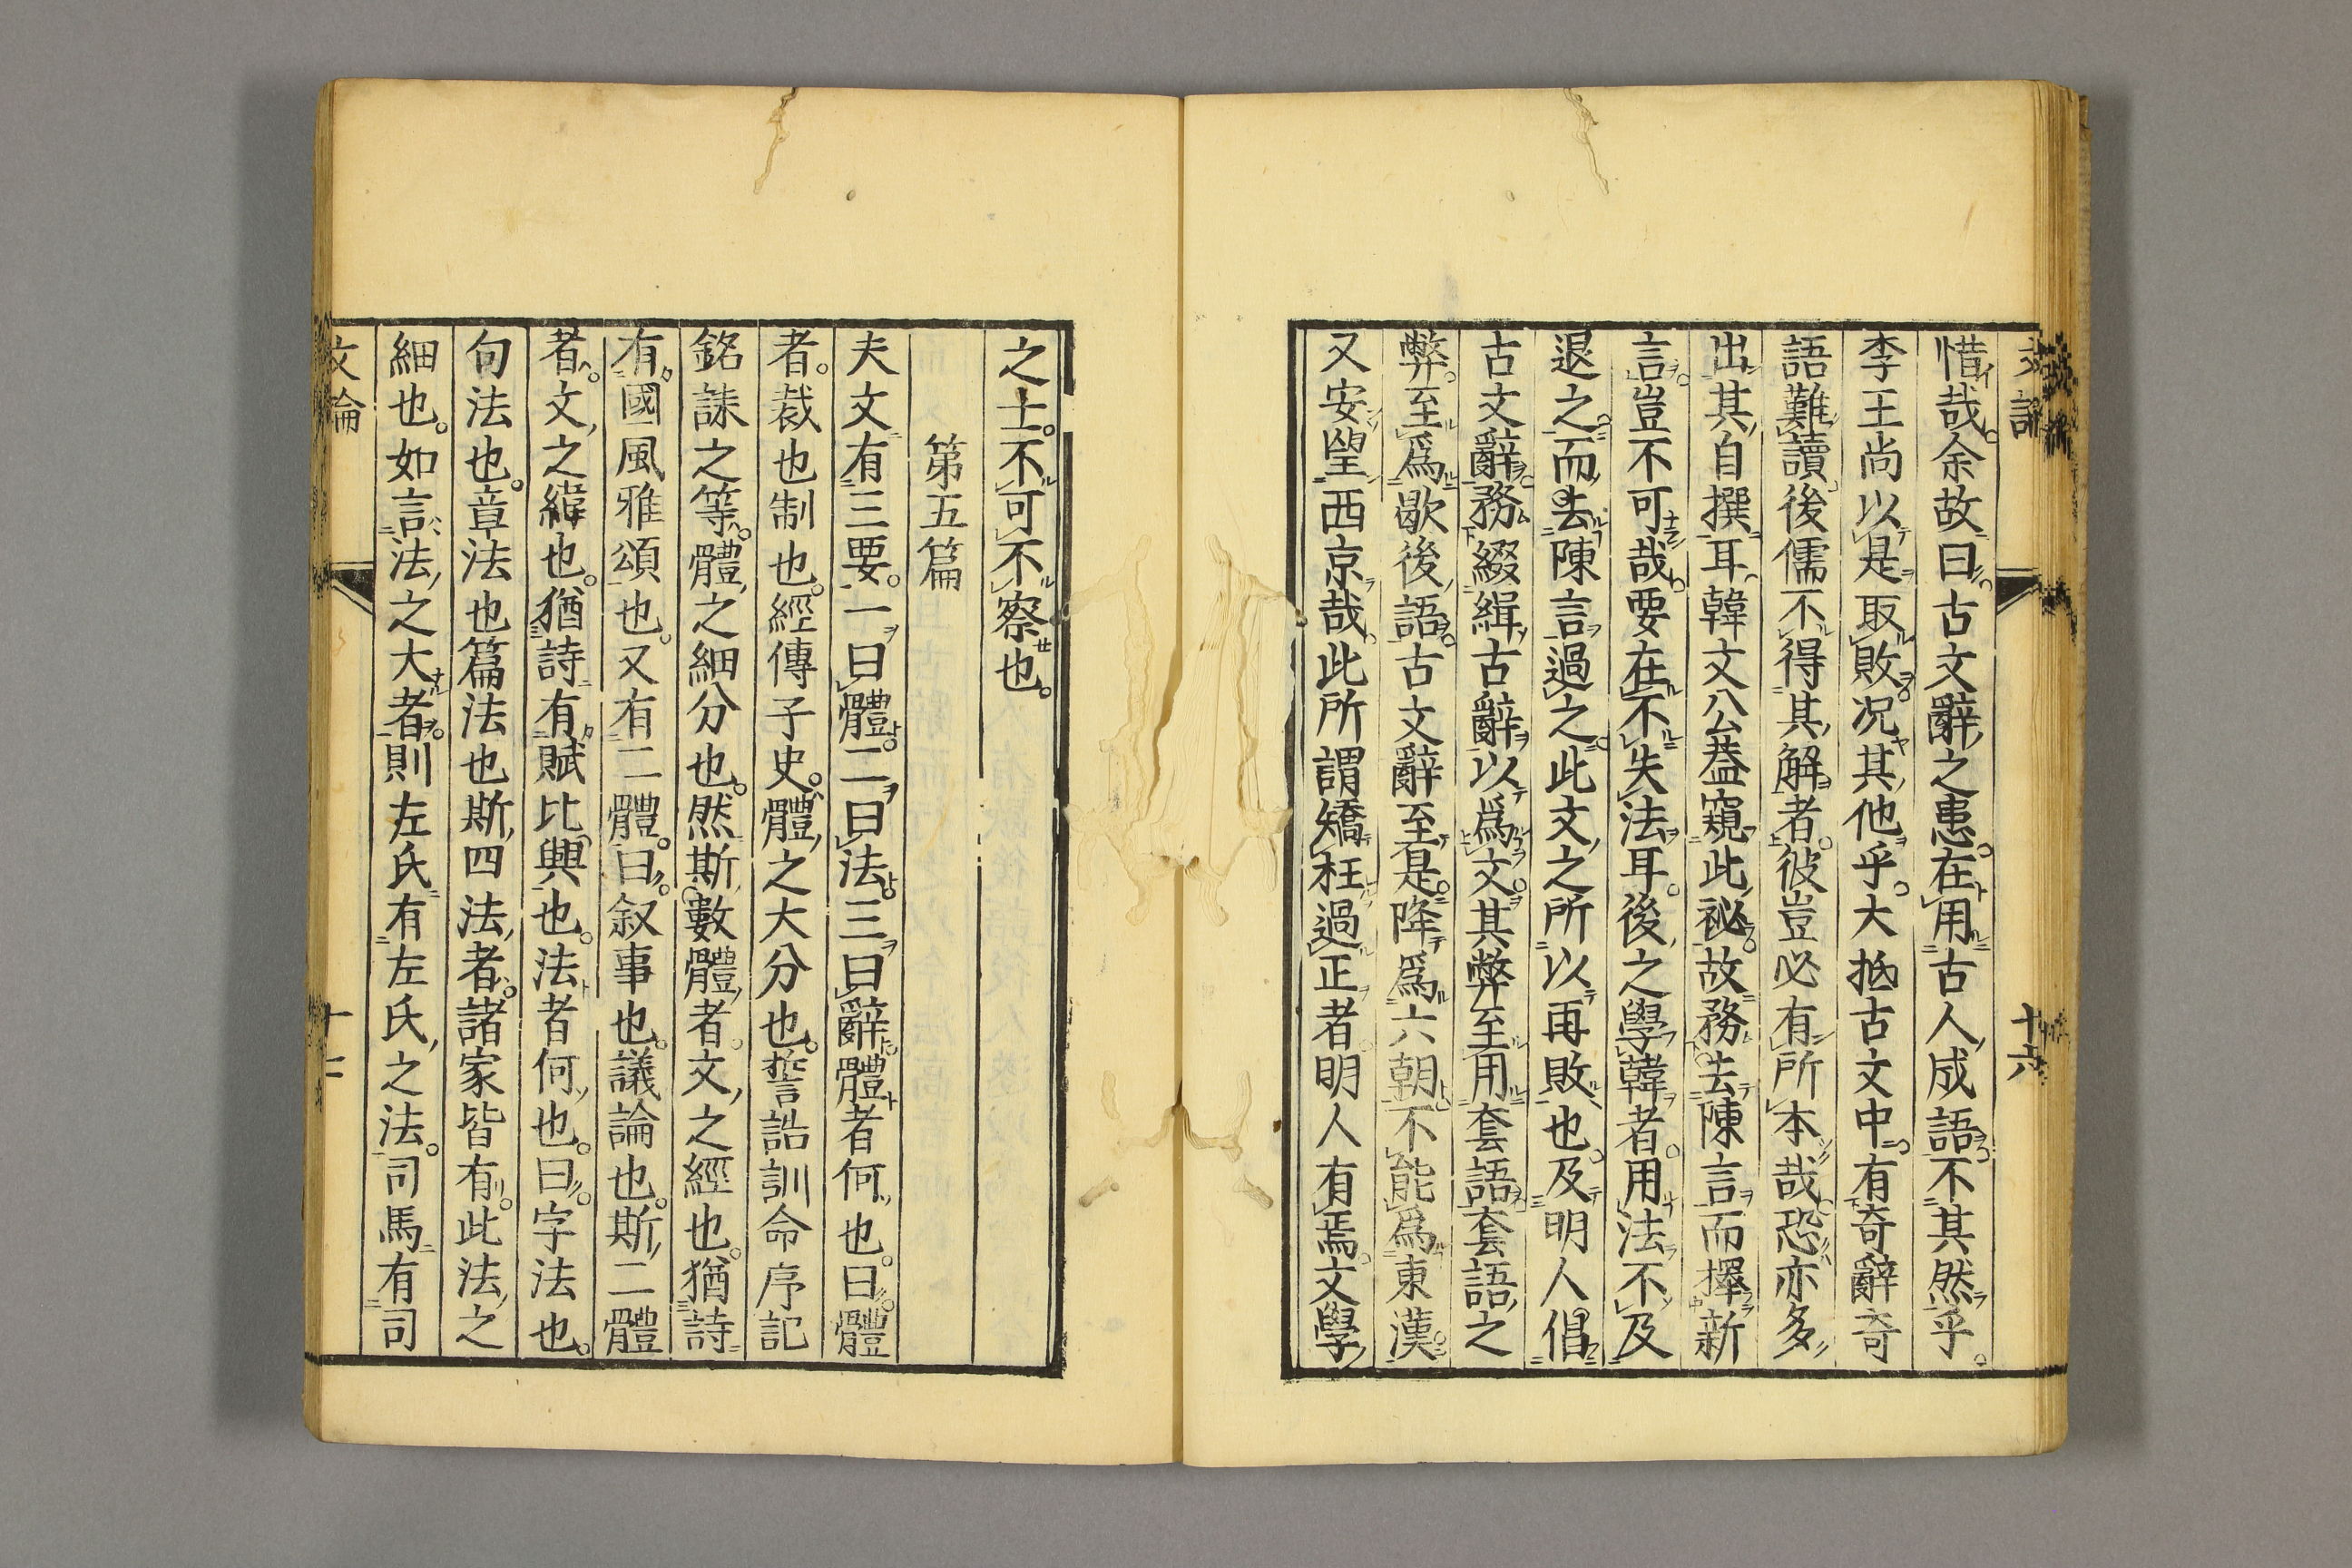 惜哉余故曰古文辭之患在用古人成語不其然乎
李王尚以是取敗況其他乎大抵古文中有奇辭奇
語難讀後儒不得其解者彼豈必有所本哉恐亦多
出其自撰耳韓文公蓋窺此祕故務去陳言而擇新
言豈不可哉要在不失法耳後之學韓者用法不及
退之而去陳言過之此文之所以再敗也及明人倡
古文辭務綴緝古辭以爲文其弊至用套語套語之
弊至爲歇後語古文辭至是降爲六朝不能爲東漢
又安望西京哉此所謂矯枉過正者明人有焉文學
之士不可不察也
第五篇
夫文有三要一曰體二曰法三曰辭體者何也曰體
者裁也制也經傳子史體之大分也誓誥訓命序記
銘誄之等體之細分也然斯數體者文之經也猶詩
有國風雅頌也又有二體曰叙事也議論也斯二體
者文之緯也猶詩有賦比興也法者何也曰字法也
句法也章法也篇法也斯四法者諸家皆有此法之
細也如言法之大者則左氏有左氏之法司馬有司
文論